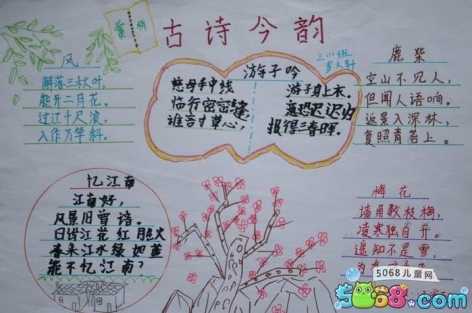 古诗今韵
风
解落三秋叶,
能开二月花.
过江千尺浪,
入竹万竿斜.
游子吟
慈母手中线
游子身上衣.
临行密密缝
意恐迟迟归
谁言寸草心,
报得三春晖.
鹿柴
空山不见人,
但闻人语响.
返景入深林,
复照青苔上.
忆江南
江南好,
风景旧曾谙.
日出江花红胜火
春来江水绿如蓝
能不忆江南?
梅花
墙角数枝梅,
凌寒独自开.
遥知不是雪,
5068儿童网
5068.com